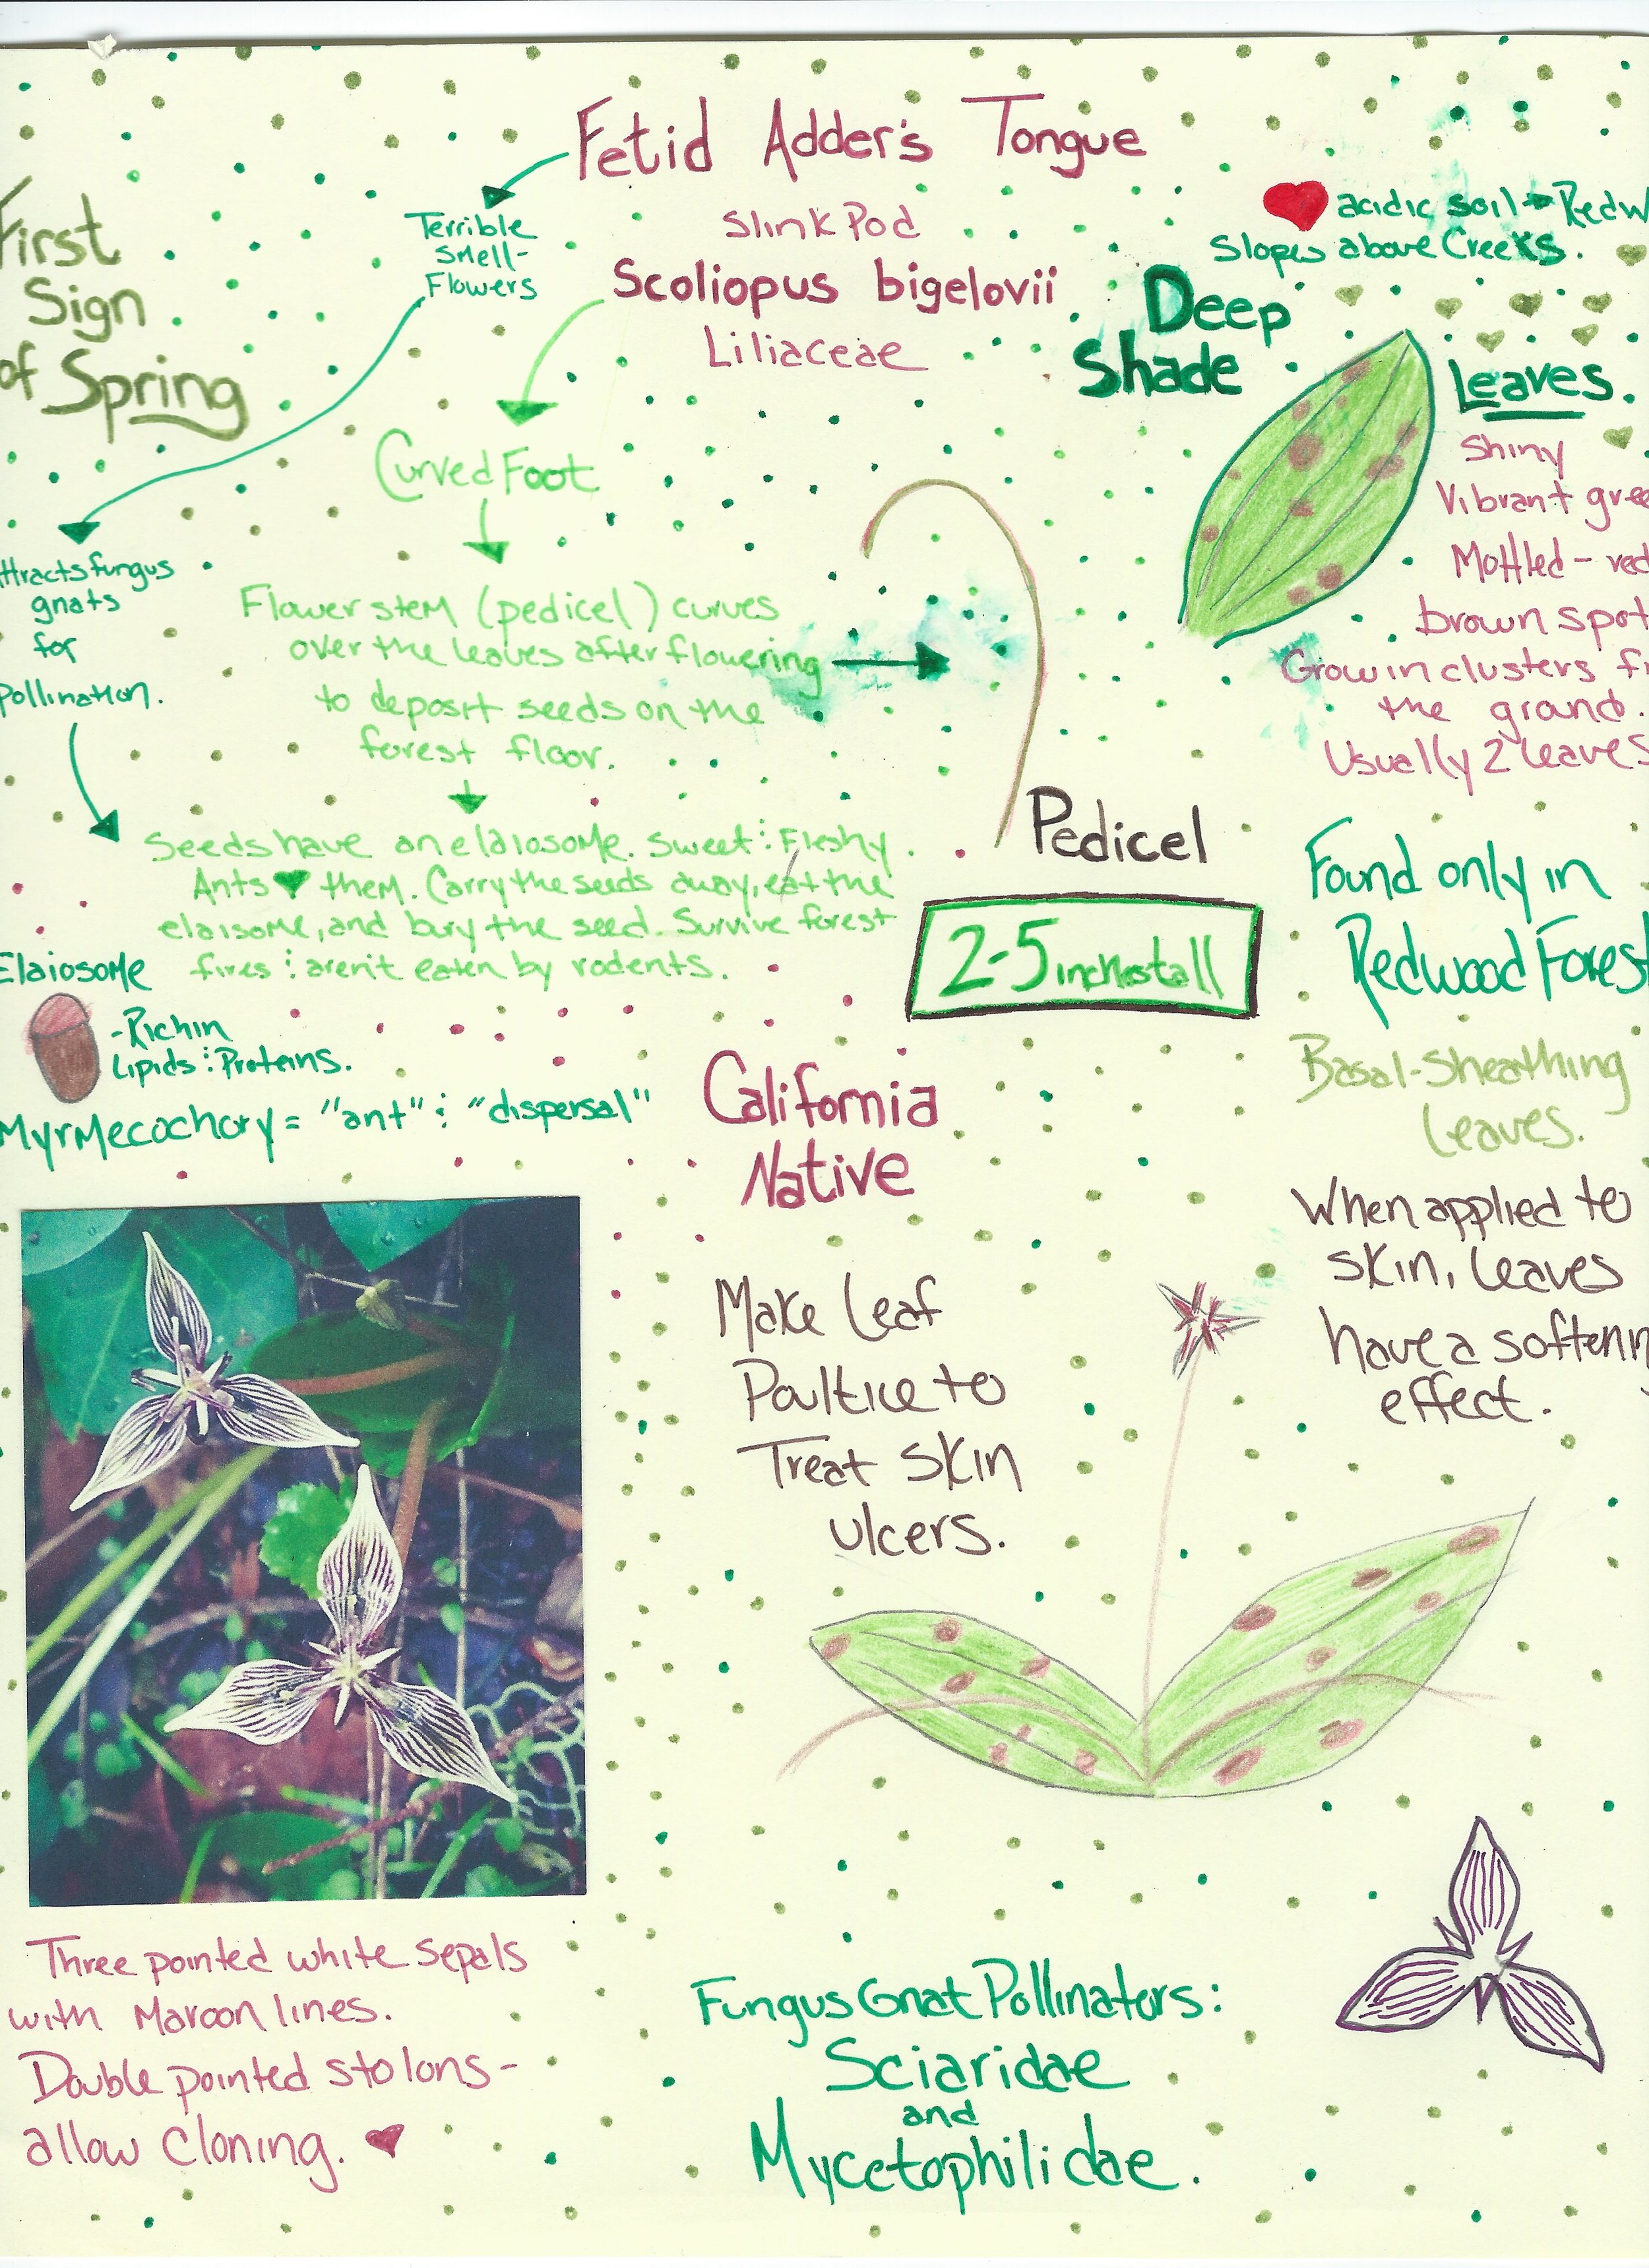 Fetid Adder's Tongue
Slink Pod
Scoliopus bigelovii
Liliaceae
First
Sign
of Spring
Terrible
Smell-
Flowers
ttracts fungus
gnats
for
Pollination.
Curved Foot
Flower stem (pedicel) curves
over the leaves after flowering
to deposit seeds on the
forest floor.
Seeds have an elaiosome. Sweet & Fleshy.
Ants ♥ them. Carry the seeds away, eat the
elaisome, and bury the seed. Survive forest
fires & aren't eaten by rodents.
Elaiosome
-Rich in
Lipids & Proteins.
Myrmecochory = "ant" & "dispersal"
♥ acidic soil → Redw
Slopes above Creeks.
Deep
Shade
Leaves.
Shiny
Vibrant gree
Mottled - red
brown spot
Grow in clusters fr
the ground.
Usually 2 leaves
Pedicel
2-5 inches tall
Found only in
Redwood Forest
Basal-Sheathing
Leaves.
California
Native
Make Leaf
Poultice to
Treat Skin
ulcers.
When applied to
skin, leaves
have a softenin
effect.
Three pointed white sepals
with Maroon lines.
Double pointed stolons-
allow cloning. ♥
Fungus Gnat Pollinators:
Sciaridae
and
Mycetophilidae.